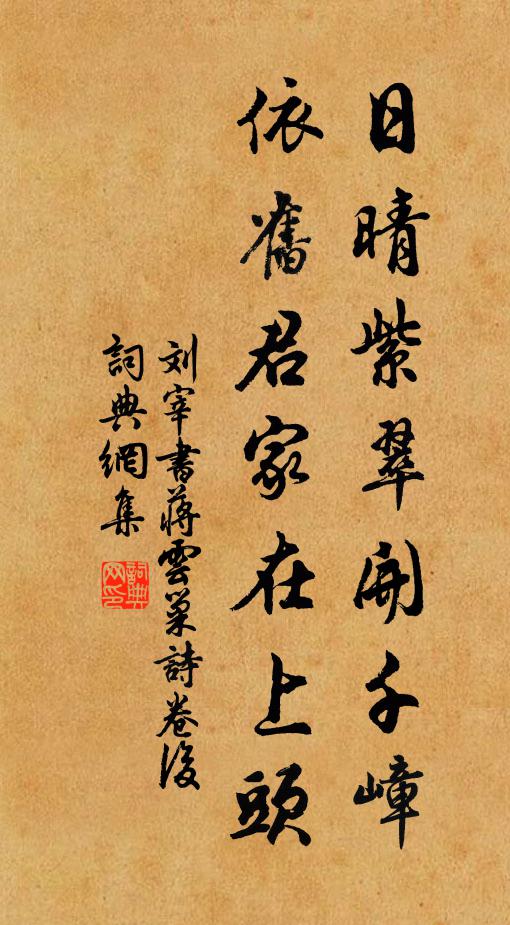 日晴紫翠開千嶂
依舊君家在上頭
刘宰書蔣雲巢詩卷後
詞典網集
詞典网印